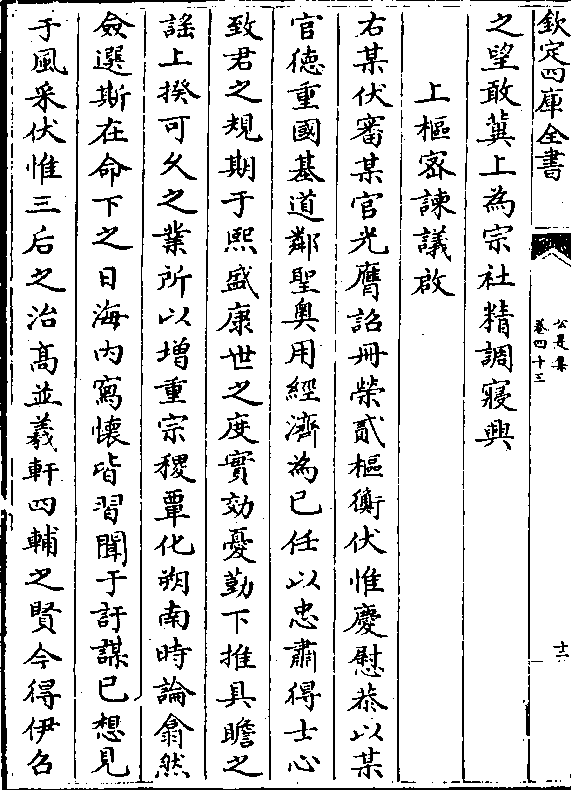 欽定四庫全書
公是集
卷四十三
十二
之望敢冀上為宗社精調寢興
上樞宻諫議啟
右某伏審某官光膺詔冊榮貳樞衡伏惟慶慰恭以某
官徳重國基道鄰聖奥用經濟為已任以忠肅得士心
致君之規期于熙盛康世之度實効憂勤下推具瞻之
謠上揆可乆之業所以增重宗稷覃化朔南時論翕然
僉選斯在命下之日海内寫懐皆習聞于訏謀已想見
于風采伏惟三后之治髙並羲軒四輔之賢今得伊吕